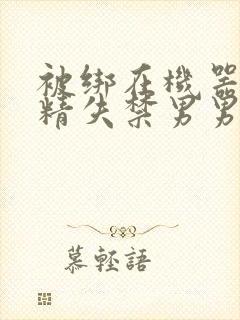 被绑在機器
精失禁男男
慕輕語